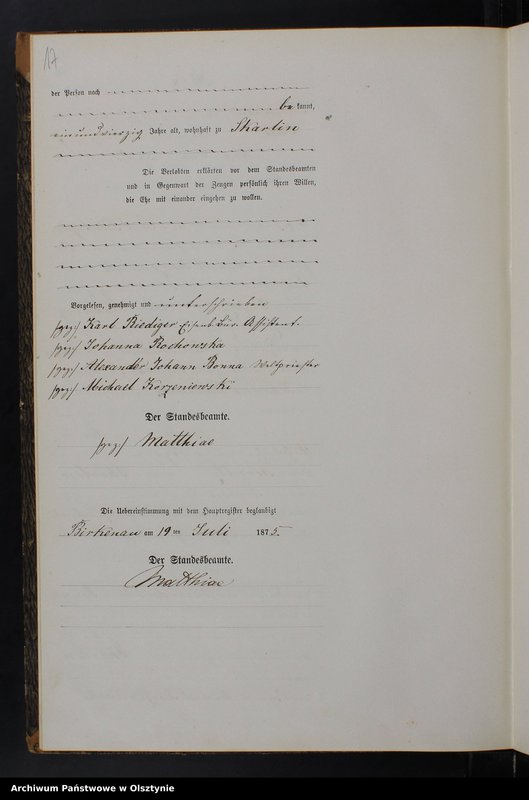 17
der Person nach
be kannt,
einundvierzig Jahre alt, wohnhaft zu Skarlin
Die Verlobten erklärten vor dem Standesbeamten
und in Gegenwart der Zeugen persönlich ihren Willen,
die Ehe mit einander eingehen zu wollen.
Vorgelesen, genehmigt und unterschrieben
(gez.) Karl Riediger Eisenb. Bür. Assistent.
(gez.) Johanna Rochowska
(gez.) Alexander Johann Bonna Weltpriester
(gez.) Michael Korzeniewski
Der Standesbeamte.
(gez.) Matthiae
Die Uebereinstimmung mit dem Hauptregister beglaubigt
Birkenau am 19 ten Juli 1875.
Der Standesbeamte.
Matthiae
Archiwum Państwowe w Olsztynie